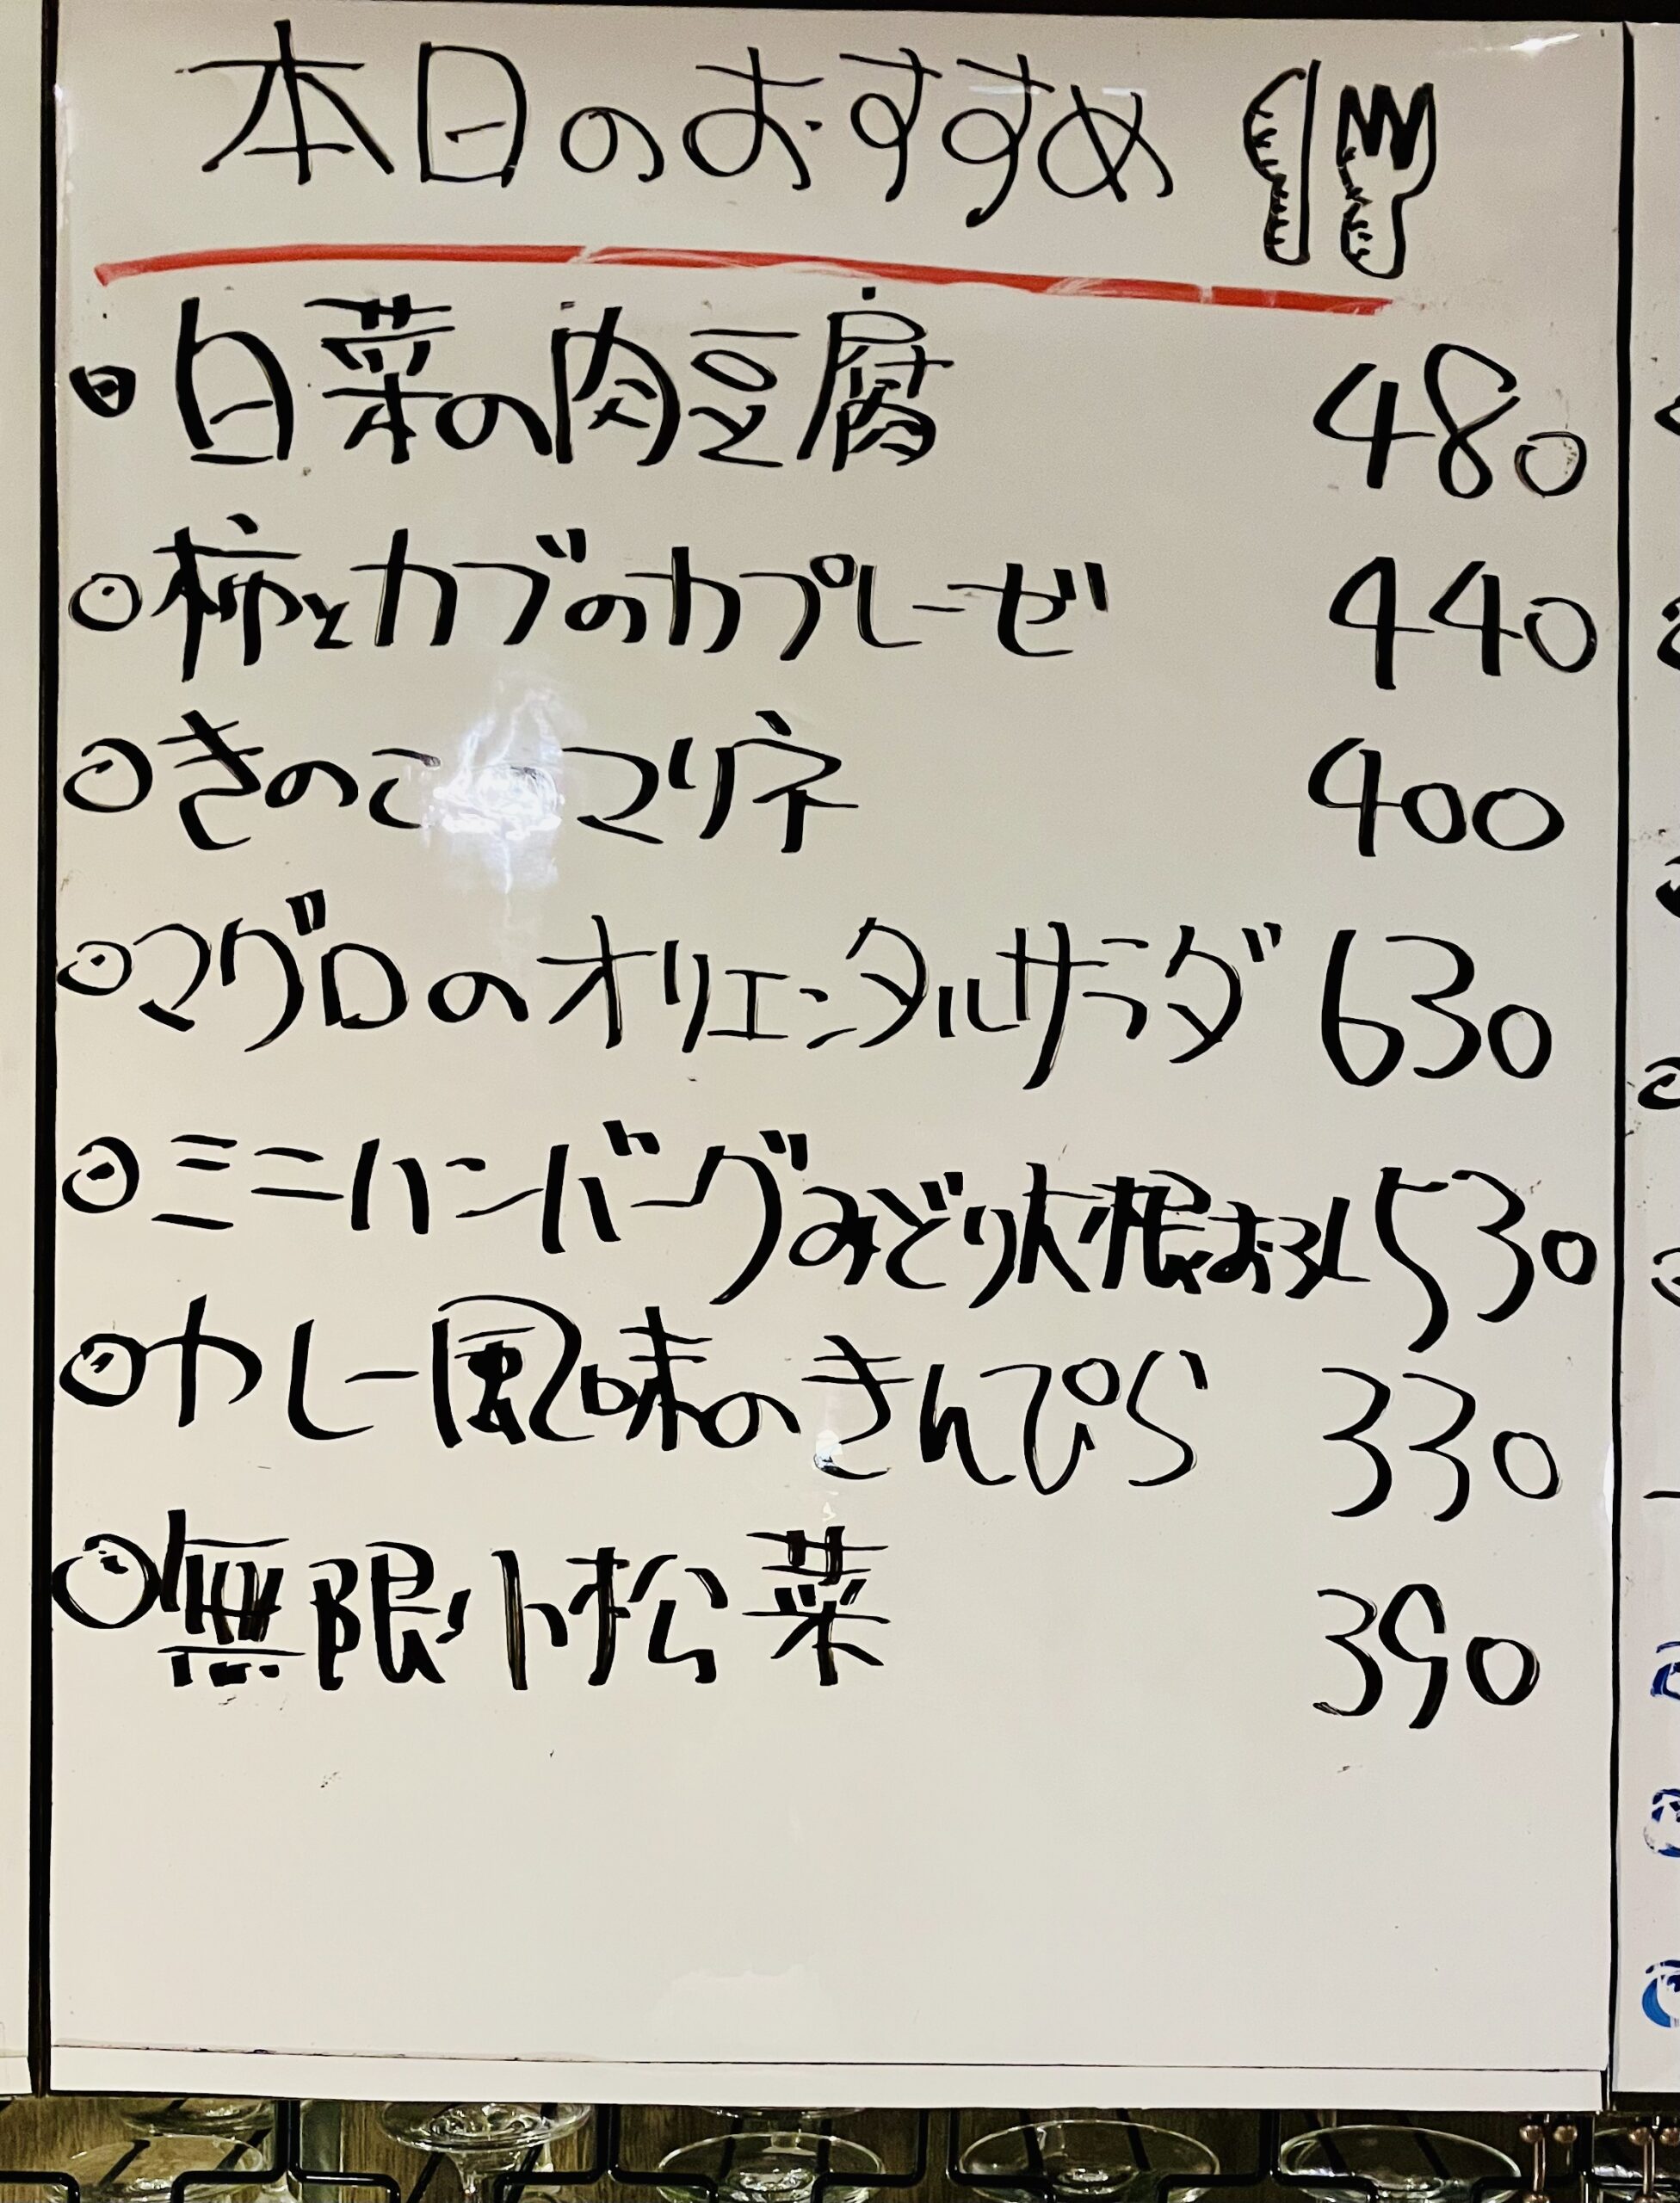 本日のおすすめ
白菜の肉豆腐 480
柿とカブのカプレーゼ 440
きのこ マリネ 400
マグロのオリエンタルサラダ 630
ミニハンバーグみどり大根おろし 530
カレー風味のきんぴら 330
無限小松菜 390